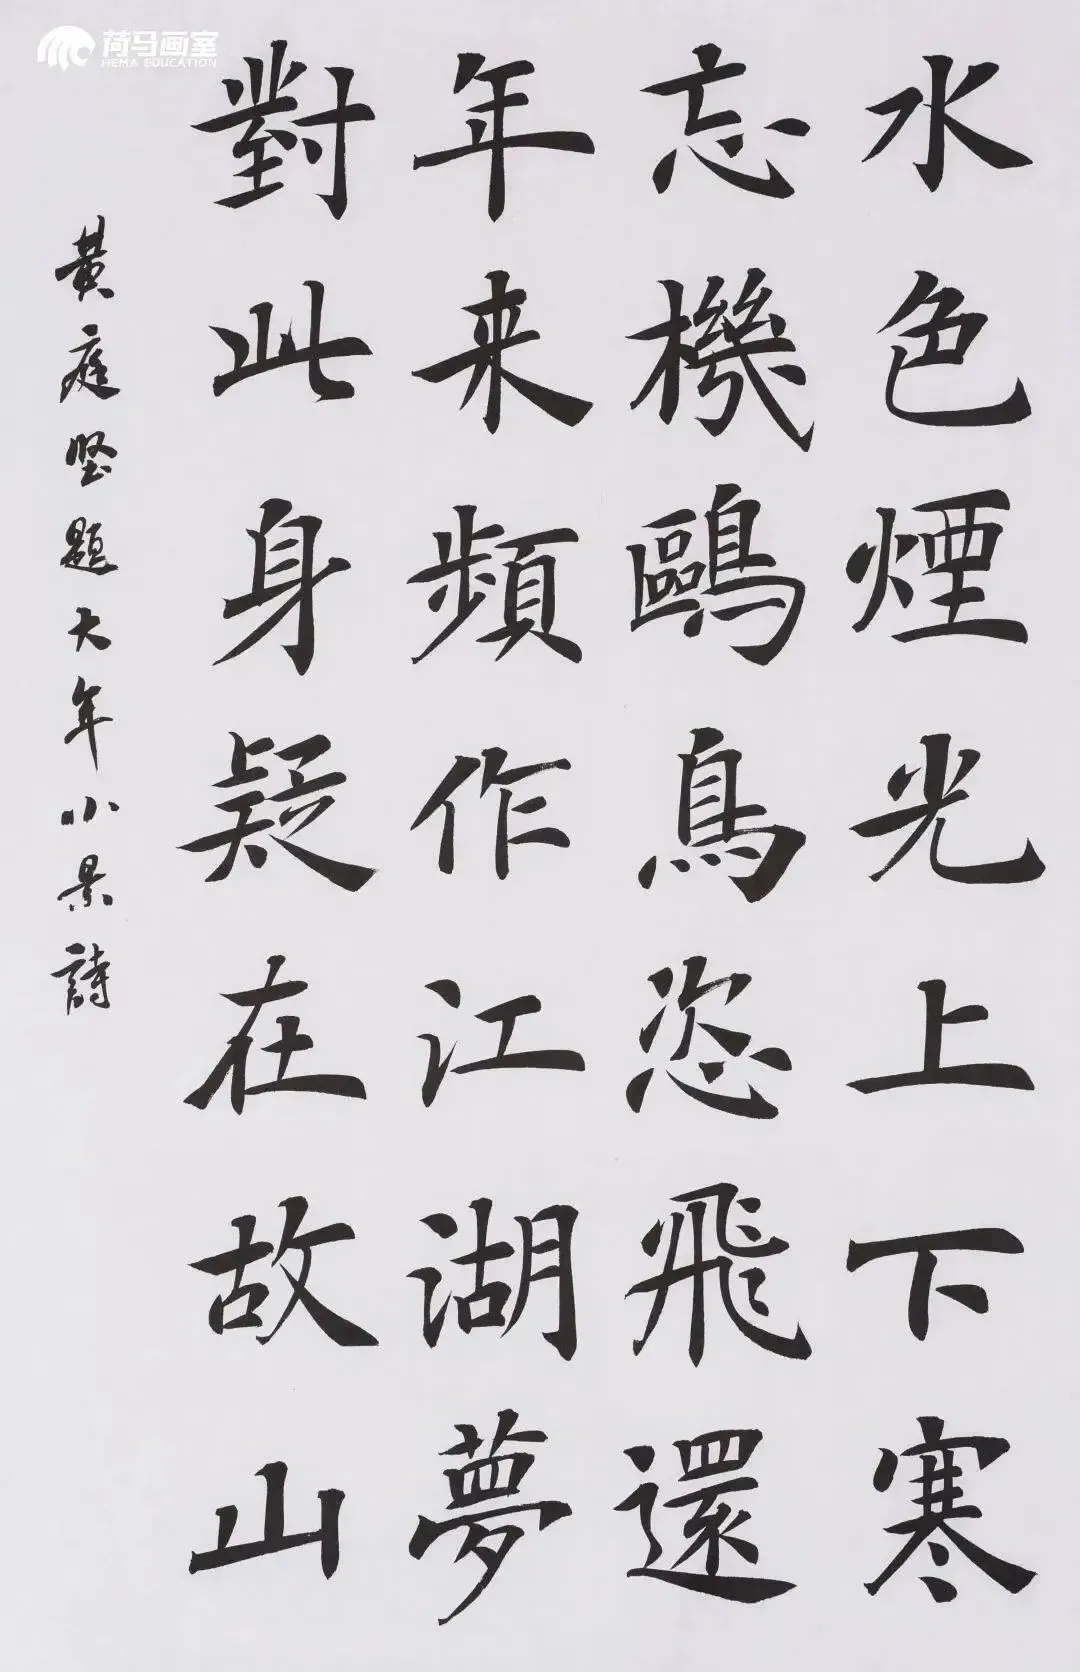 水色煙光上下寒
忘機鷗鳥恣飛還
年来頻作江湖夢
對此身疑在故山
黄庭坚題大年小景詩
荷马画室
HEMA EDUCATION